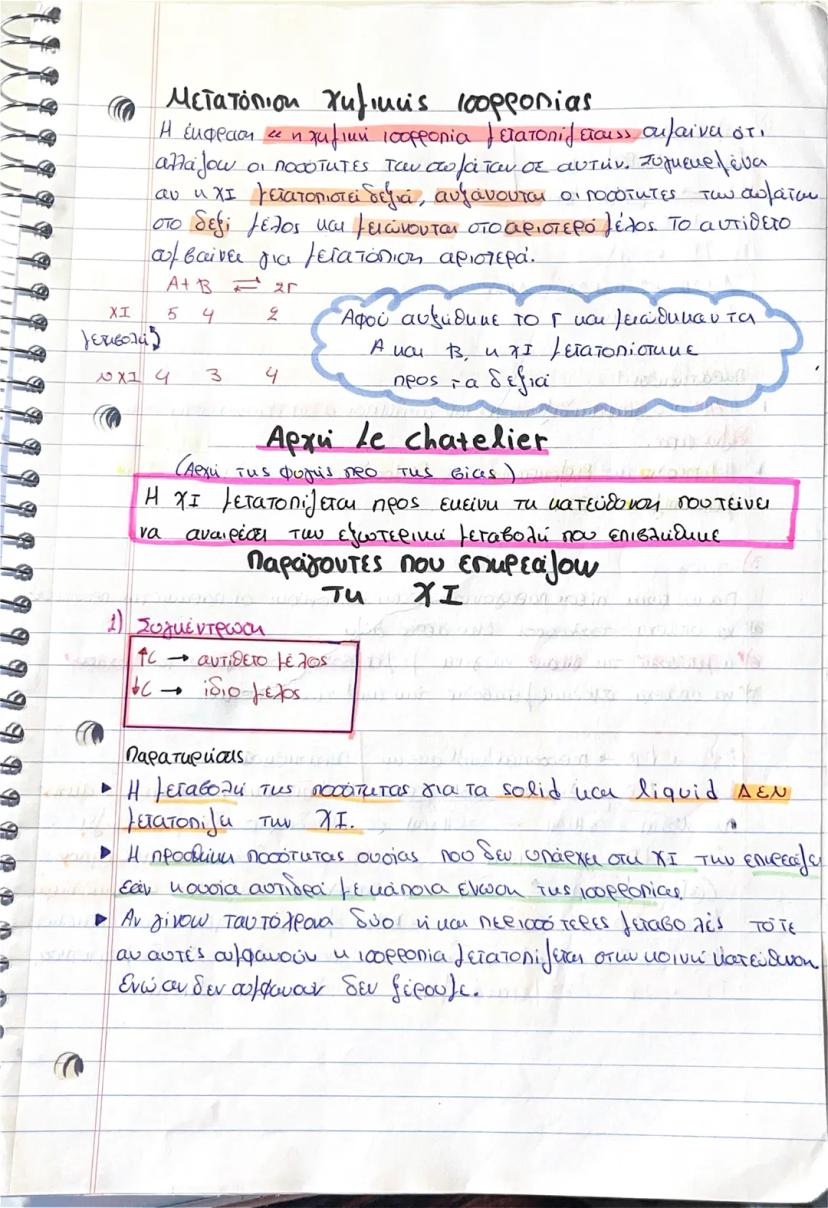 Μετατόπιση χημικής ισορροπίας
Η έκφραση «η χημική ισορροπία μετατοπίζεται» σημαίνει ότι
αλλάζουν οι ποσότητες των σωμάτων σε αυτήν. Συγκεκριμένα
αν η ΧΙ μετατοπιστεί δεξιά, αυξάνονται οι ποσότητες των σωμάτων
στο δεξί μέλος και μειώνονται στο αριστερό μέλος. Το αντίθετο
συμβαίνει για μετατόπιση αριστερά.
Α + Β ⇌ 2Γ
ΧΙ 5 4 2
μεταβολή
ΝΧΙ 4 3 4
Αφού αυξήθηκε το Γ και μειώθηκαν τα
Α και Β, η ΧΙ μετατοπίστηκε
προς τα δεξιά
Αρχή Le chatelier
(Αρχή της φυγής προ της βίας)
Η ΧΙ μετατοπίζεται προς εκείνη τη κατεύθυνση που τείνει
να αναιρέσει την εξωτερική μεταβολή που επιβλήθηκε
Παράγοντες που επηρεάζουν
τη ΧΙ
1) Συγκέντρωση
↑C → αντίθετο μέλος
↓C → ίδιο μέλος
Παρατηρήσεις
▸ Η μεταβολή της ποσότητας για τα solid και liquid ΔΕΝ
μετατοπίζει την ΧΙ.
▸ Η προσθήκη ποσότητας ουσίας που δεν υπάρχει στη ΧΙ την επηρεάζει
εάν η ουσία αντιδρά με κάποια ένωση της ισορροπίας.
▸ Αν γίνουν ταυτόχρονα δύο ή και περισσότερες μεταβολές τότε
αν αυτές συμφωνούν η ισορροπία μετατοπίζεται στην κοινή κατεύθυνση
Ενώ αν δεν συμφωνούν δεν ξέρουμε.